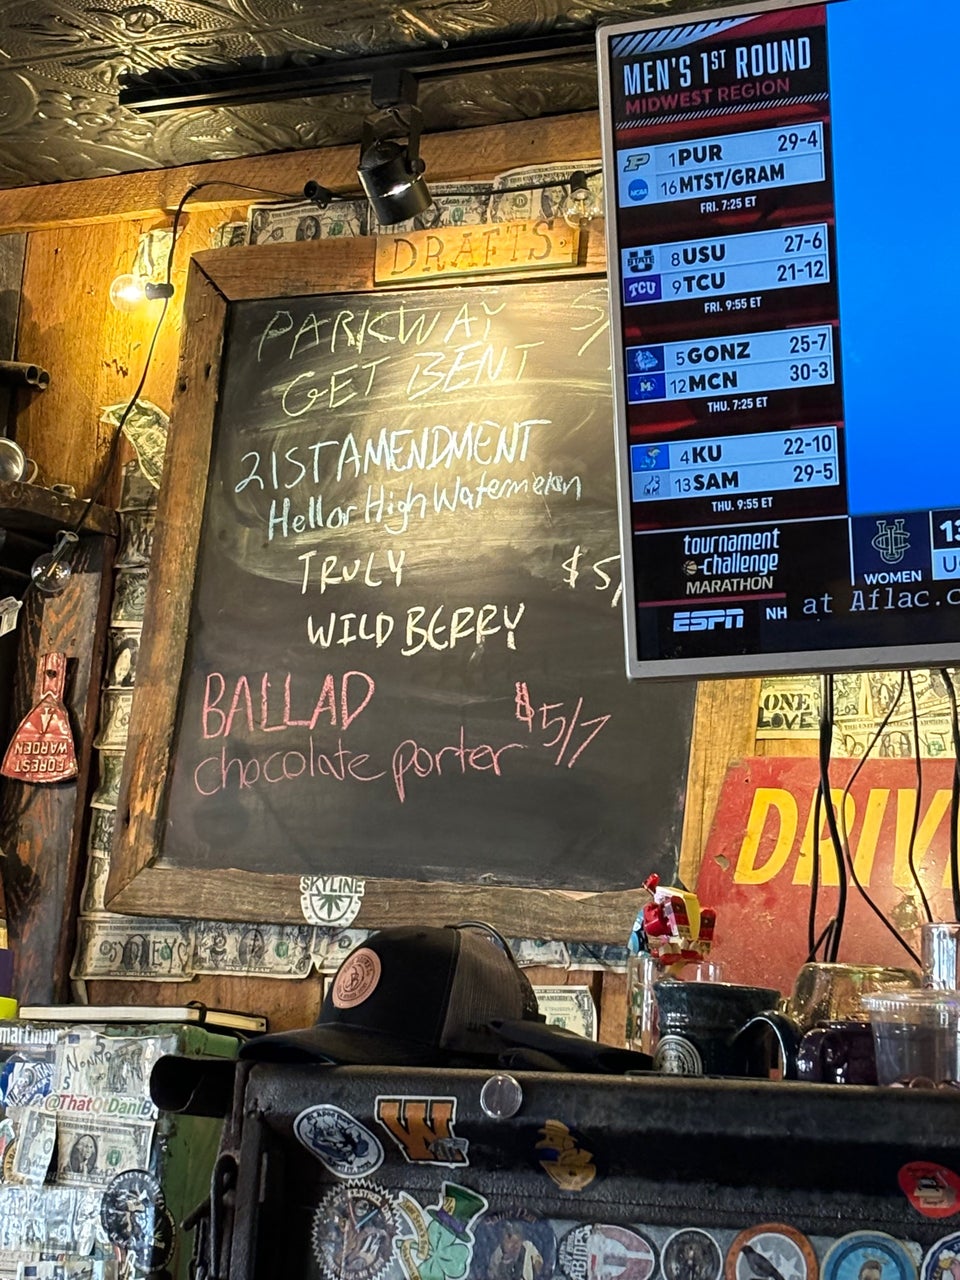 DRAFTS
PARKWAY 5/
GET BENT
21ST AMENDMENT
Hell or High Watermelon
TRULY $5/
WILDBERRY
BALLAD $5/7
chocolate porter
MEN'S 1ST ROUND
MIDWEST REGION
1 PUR 29-4
16 MTST/GRAM
FRI. 7:25 ET
8 USU 27-6
9 TCU 21-12
FRI. 9:55 ET
5 GONZ 25-7
12 MCN 30-3
THU. 7:25 ET
4 KU 22-10
13 SAM 29-5
THU. 9:55 ET
tournament
challenge
MARATHON
WOMEN
13
U
ESPN NH at Aflac.c
STATE
TCU
NCAA
ONE
LOVE
DRIV
FOREST
WARDEN
SKYLINE
SYDNEY
@ThatQtDaniB
W